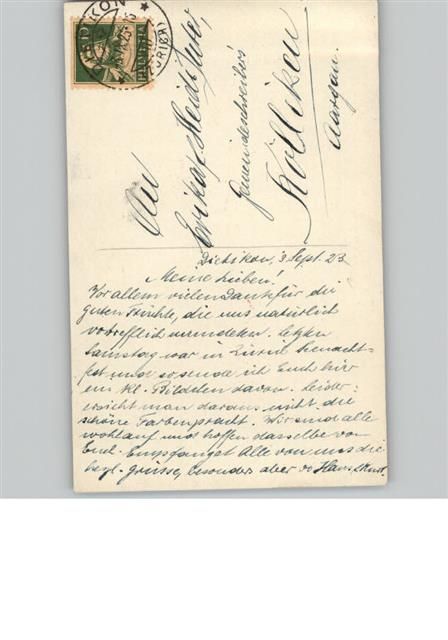 DIETIKON
(ZÜRICH)
HELVETIA
10
An
Erika Heidhuber,
Gemeindeschreiber's
Kölliken
Aargau.
Dietikon, 3. Sept. 23.
Meine Lieben!
Vor allem vielen Dank für die
guten Früchte, die uns natürlich
vortrefflich mundeten. Letzten
Samstag war in Zürich Seenacht-
fest und so sende ich Euch hier
ein kl. Bildchen davon. Leider
ersieht man daraus nicht die
schöne Farbenpracht. Wir sind alle
wohlauf und hoffen dasselbe von
Euch. Empfanget Alle von uns die
herzl. Grüsse, besonders aber v. Hans,